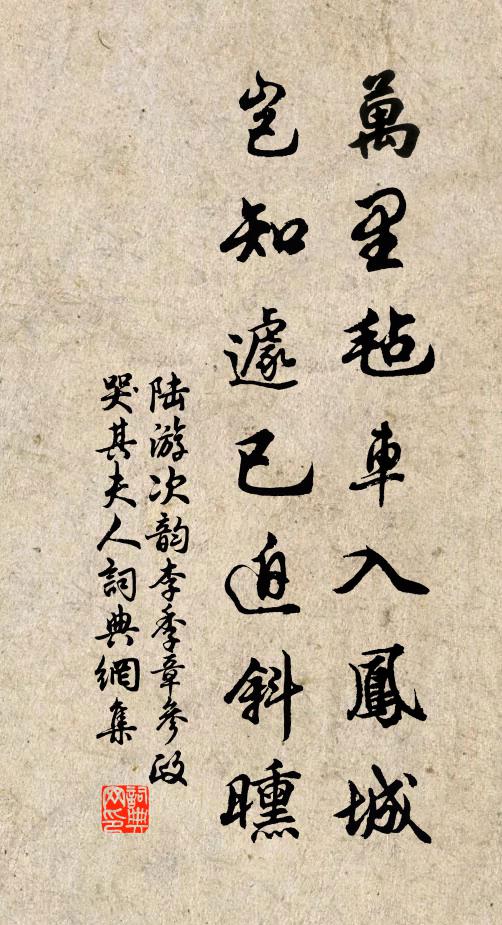 萬里毡車入鳳城
豈知遽已迫斜曛
陆游次韵李季章參政
哭其夫人詞典網集
詞典
网印